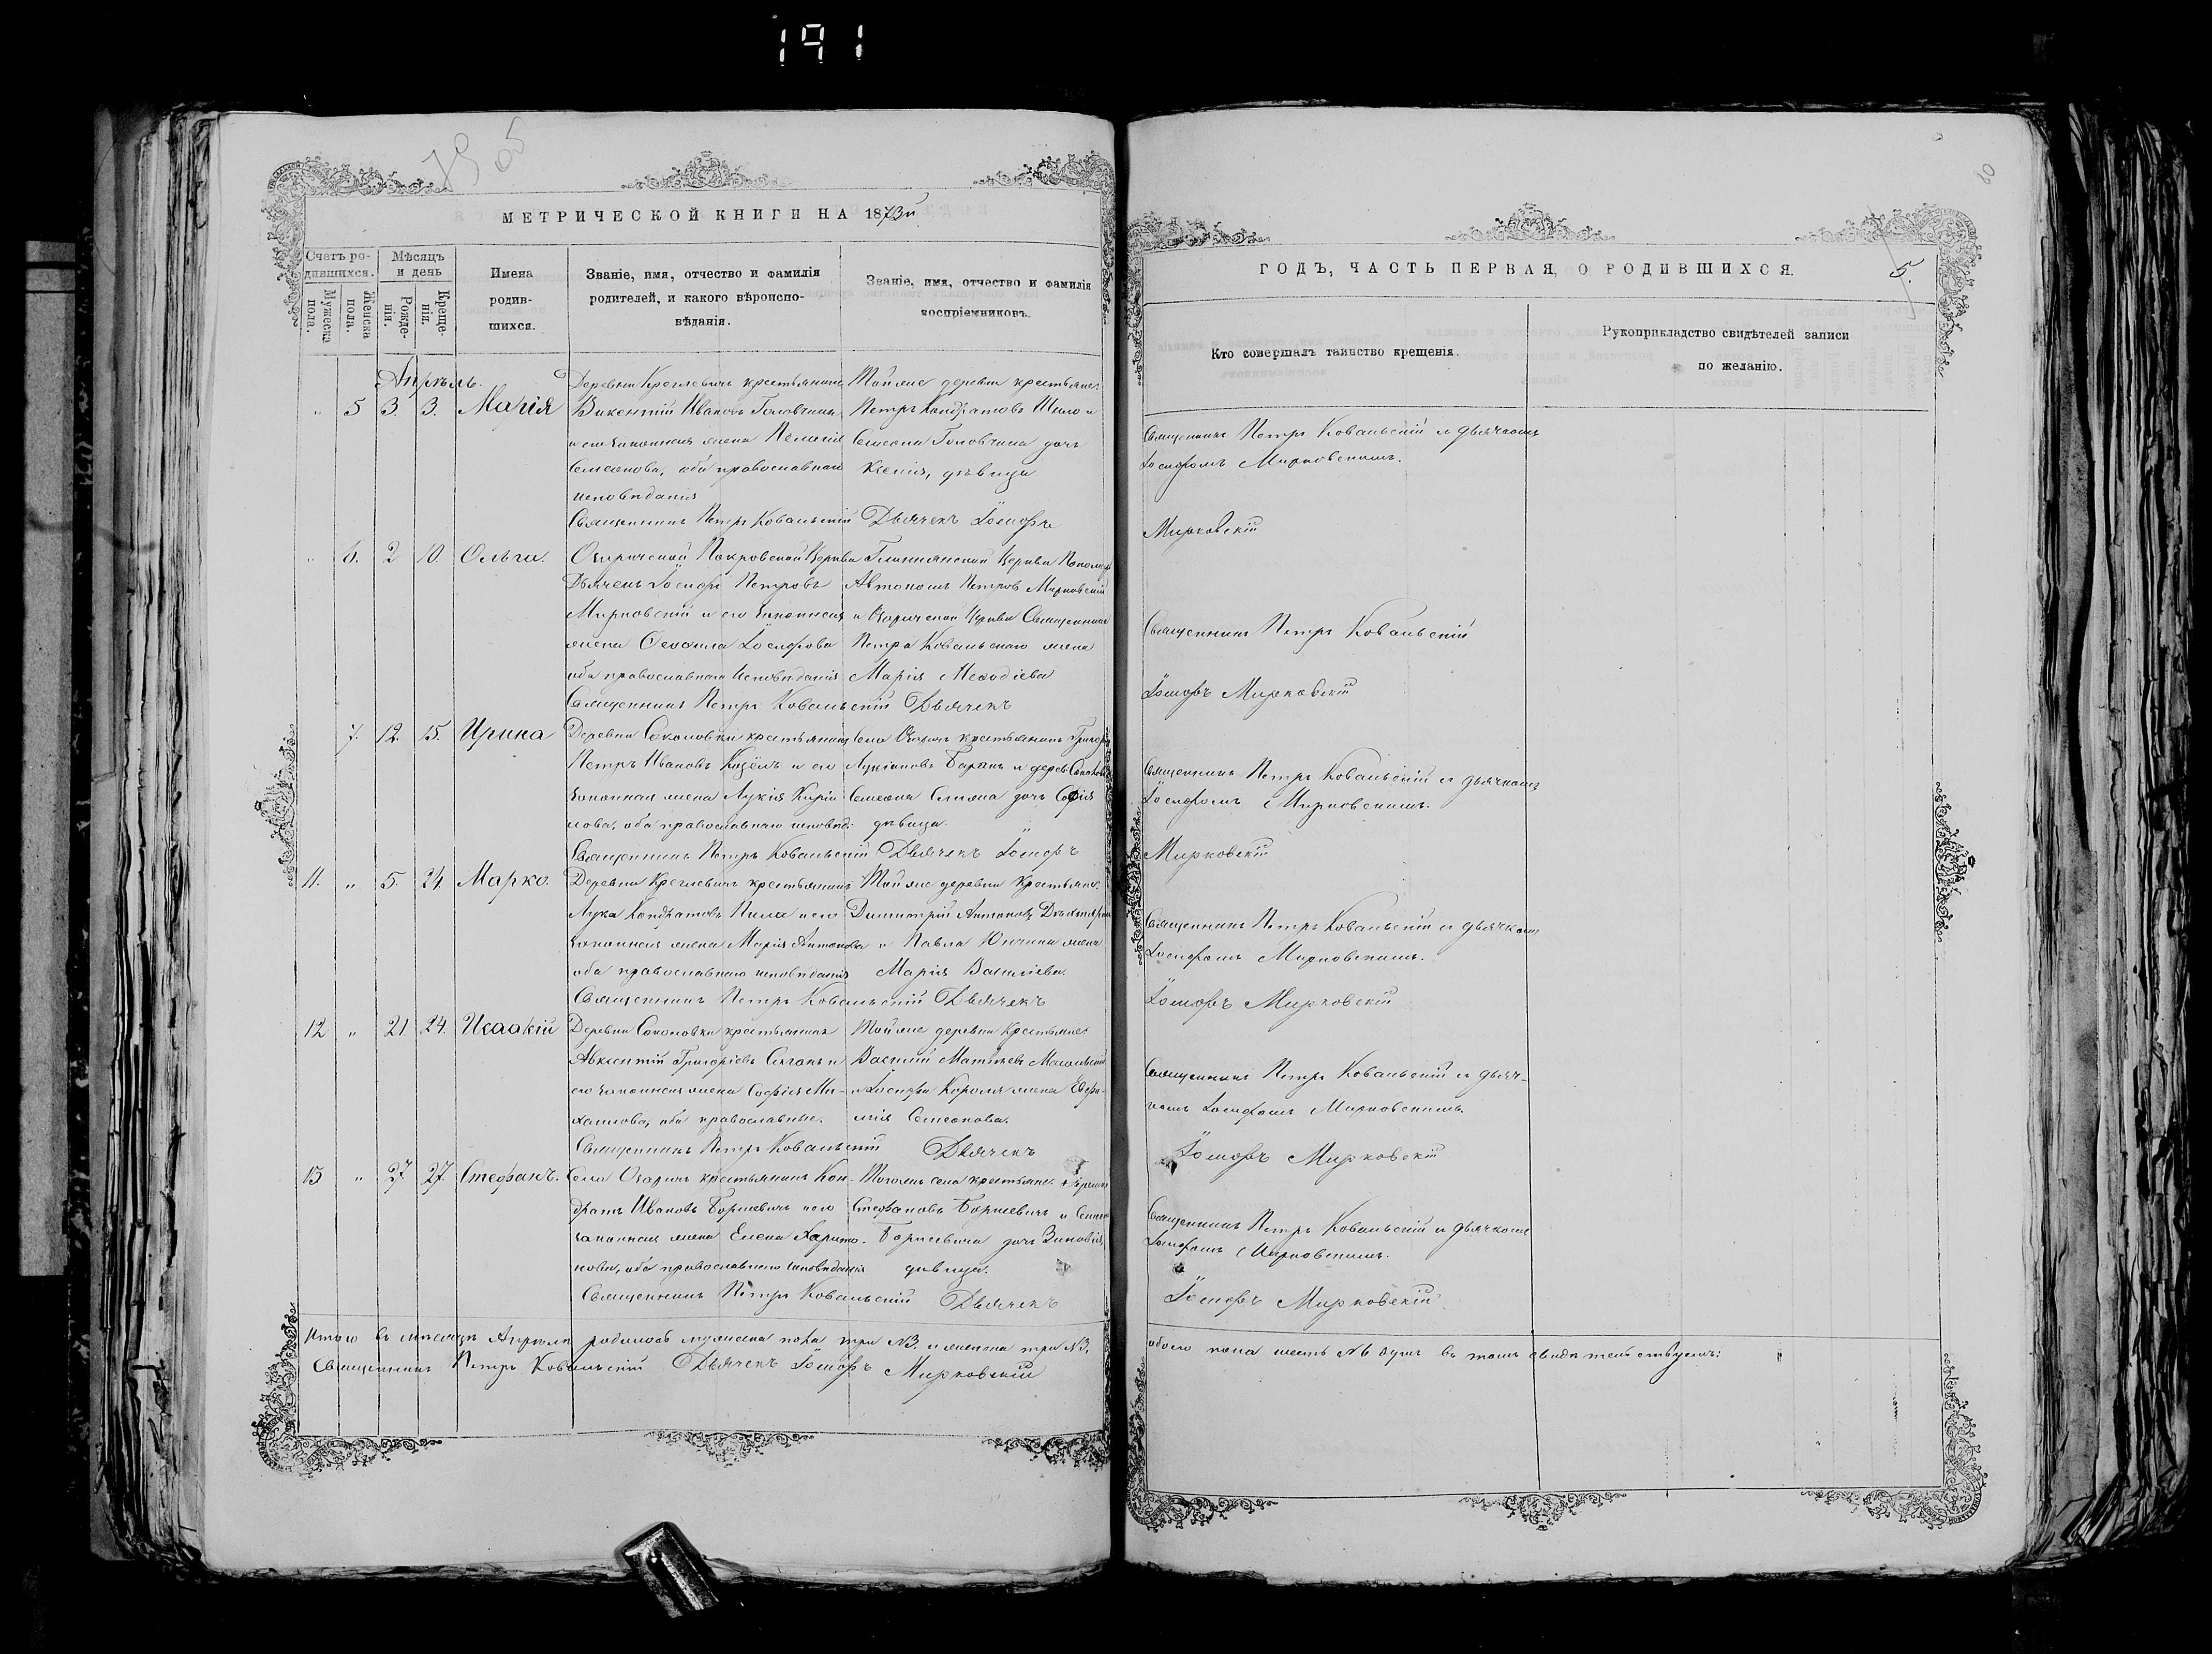 191
МЕТРИЧЕСКОЙ КНИГИ НА 1873й
Счетъ ро-
дившихся.
Мужеска
пола.
Женска
пола.
Мѣсяцъ
и день
Рожде-
нія.
Креще-
нія.
Имена
родив-
шихся.
Званіе, имя, отчество и фамилія
родителей, и какого вѣроиспо-
вѣданія.
Званіе, имя, отчество и фамилія
воспріемниковъ.
Апрѣль.
" 5 3. 3. Марія
Деревни Креглевичъ крестьянинъ
Викентій Ивановъ Головчикъ
и его законная жена Пелагія
Семеонова, оба православнаго
исповѣданія
Тойже деревни крестьяне:
Петръ Кондратовъ Шило и
Семеона Головчика дочь
Ксенія, дѣвица
Священникъ Петръ Ковальскій Дьячекъ Іосифъ
" 6. 2 10. Ольга.
Озаричской Покровской Церкви
Дьячекъ Іосифъ Петровъ
Мирковскій и его законная
жена Іосифова
оба православнаго исповѣданія
Церкви Пономарь
Автономъ Петровъ Мирковскій
и Озаричской Церкви Священника
Петра Ковальскаго жена
Марія Меѳодіева
Священникъ Петръ Ковальскій Дьячекъ
7. 12. 15. Ирина
Деревни Соколовки крестьянинъ
Петръ Ивановъ Козёлъ и его
законная жена Лукія Кирил-
лова, оба православнаго исповѣд:
Села Озаричъ крестьянинъ Григорій
Лукіановъ Баранъ и дерев: Соколовки
Семеона дочь Софія
дѣвица.
Священникъ Петръ Ковальскій Дьячекъ Іосифъ
11. " 5. 24. Марко.
Деревни Креглевичъ крестьянинъ
Лука Кондратовъ Шило и его
законная жена Марія Антонова
оба православнаго исповѣданія
Тойже деревни Крестьяне:
Димитрій Антоновъ
и Павла жена
Марія Василіева.
Священникъ Петръ Ковальскій Дьячекъ
12 " 21 24. Исаакій
Деревни Соколовки крестьянинъ
Авксентій Григоріевъ и
его законная жена Софія Ми-
хаилова, оба православные.
Тойже деревни Крестьяне:
Василій Матѳеевъ
и Іосифа Короля жена Евфи-
мія Семеонова.
Священникъ Петръ Ковальскій Дьячекъ
13 " 27. 27. Стефанъ.
Села Озаричъ крестьянинъ Кон-
дратъ Ивановъ Борисевичъ и его
законная жена Елена Харито-
нова, оба православнаго исповѣданія
Тогожъ села крестьяне:
Стефановъ Борисевичъ и
Борисевича дочь Зиновія,
дѣвица.
Священникъ Петръ Ковальскій Дьячекъ
Итого въ мѣсяцѣ Апрѣлѣ родилось мужеска пола три №3. и женска три №3,
Священникъ Петръ Ковальскій Дьячекъ Іосифъ Мирковскій
60
ГОДЪ, ЧАСТЬ ПЕРВАЯ, О РОДИВШИХСЯ.
5.
Кто совершалъ таинство крещенія.
Рукоприкладство свидѣтелей записи
по желанію.
Священникъ Петръ Ковальскій и дьячкомъ
Іосифомъ Мирковскимъ.
Мирковскій
Священникъ Петръ Ковальскій
Іосифъ Мирковскій
Священникъ Петръ Ковальскій и дьячкомъ
Іосифомъ Мирковскимъ.
Мирковскій
Священникъ Петръ Ковальскій и дьячкомъ
Іосифомъ Мирковскимъ.
Іосифъ Мирковскій
Священникъ Петръ Ковальскій и дьяч-
комъ Іосифомъ Мирковскимъ.
Іосифъ Мирковскій
Священникъ Петръ Ковальскій и дьячкомъ
Іосифомъ Мирковскимъ.
Іосифъ Мирковскій
обоего пола шесть №6 душъ въ томъ свидѣтельствуемъ: